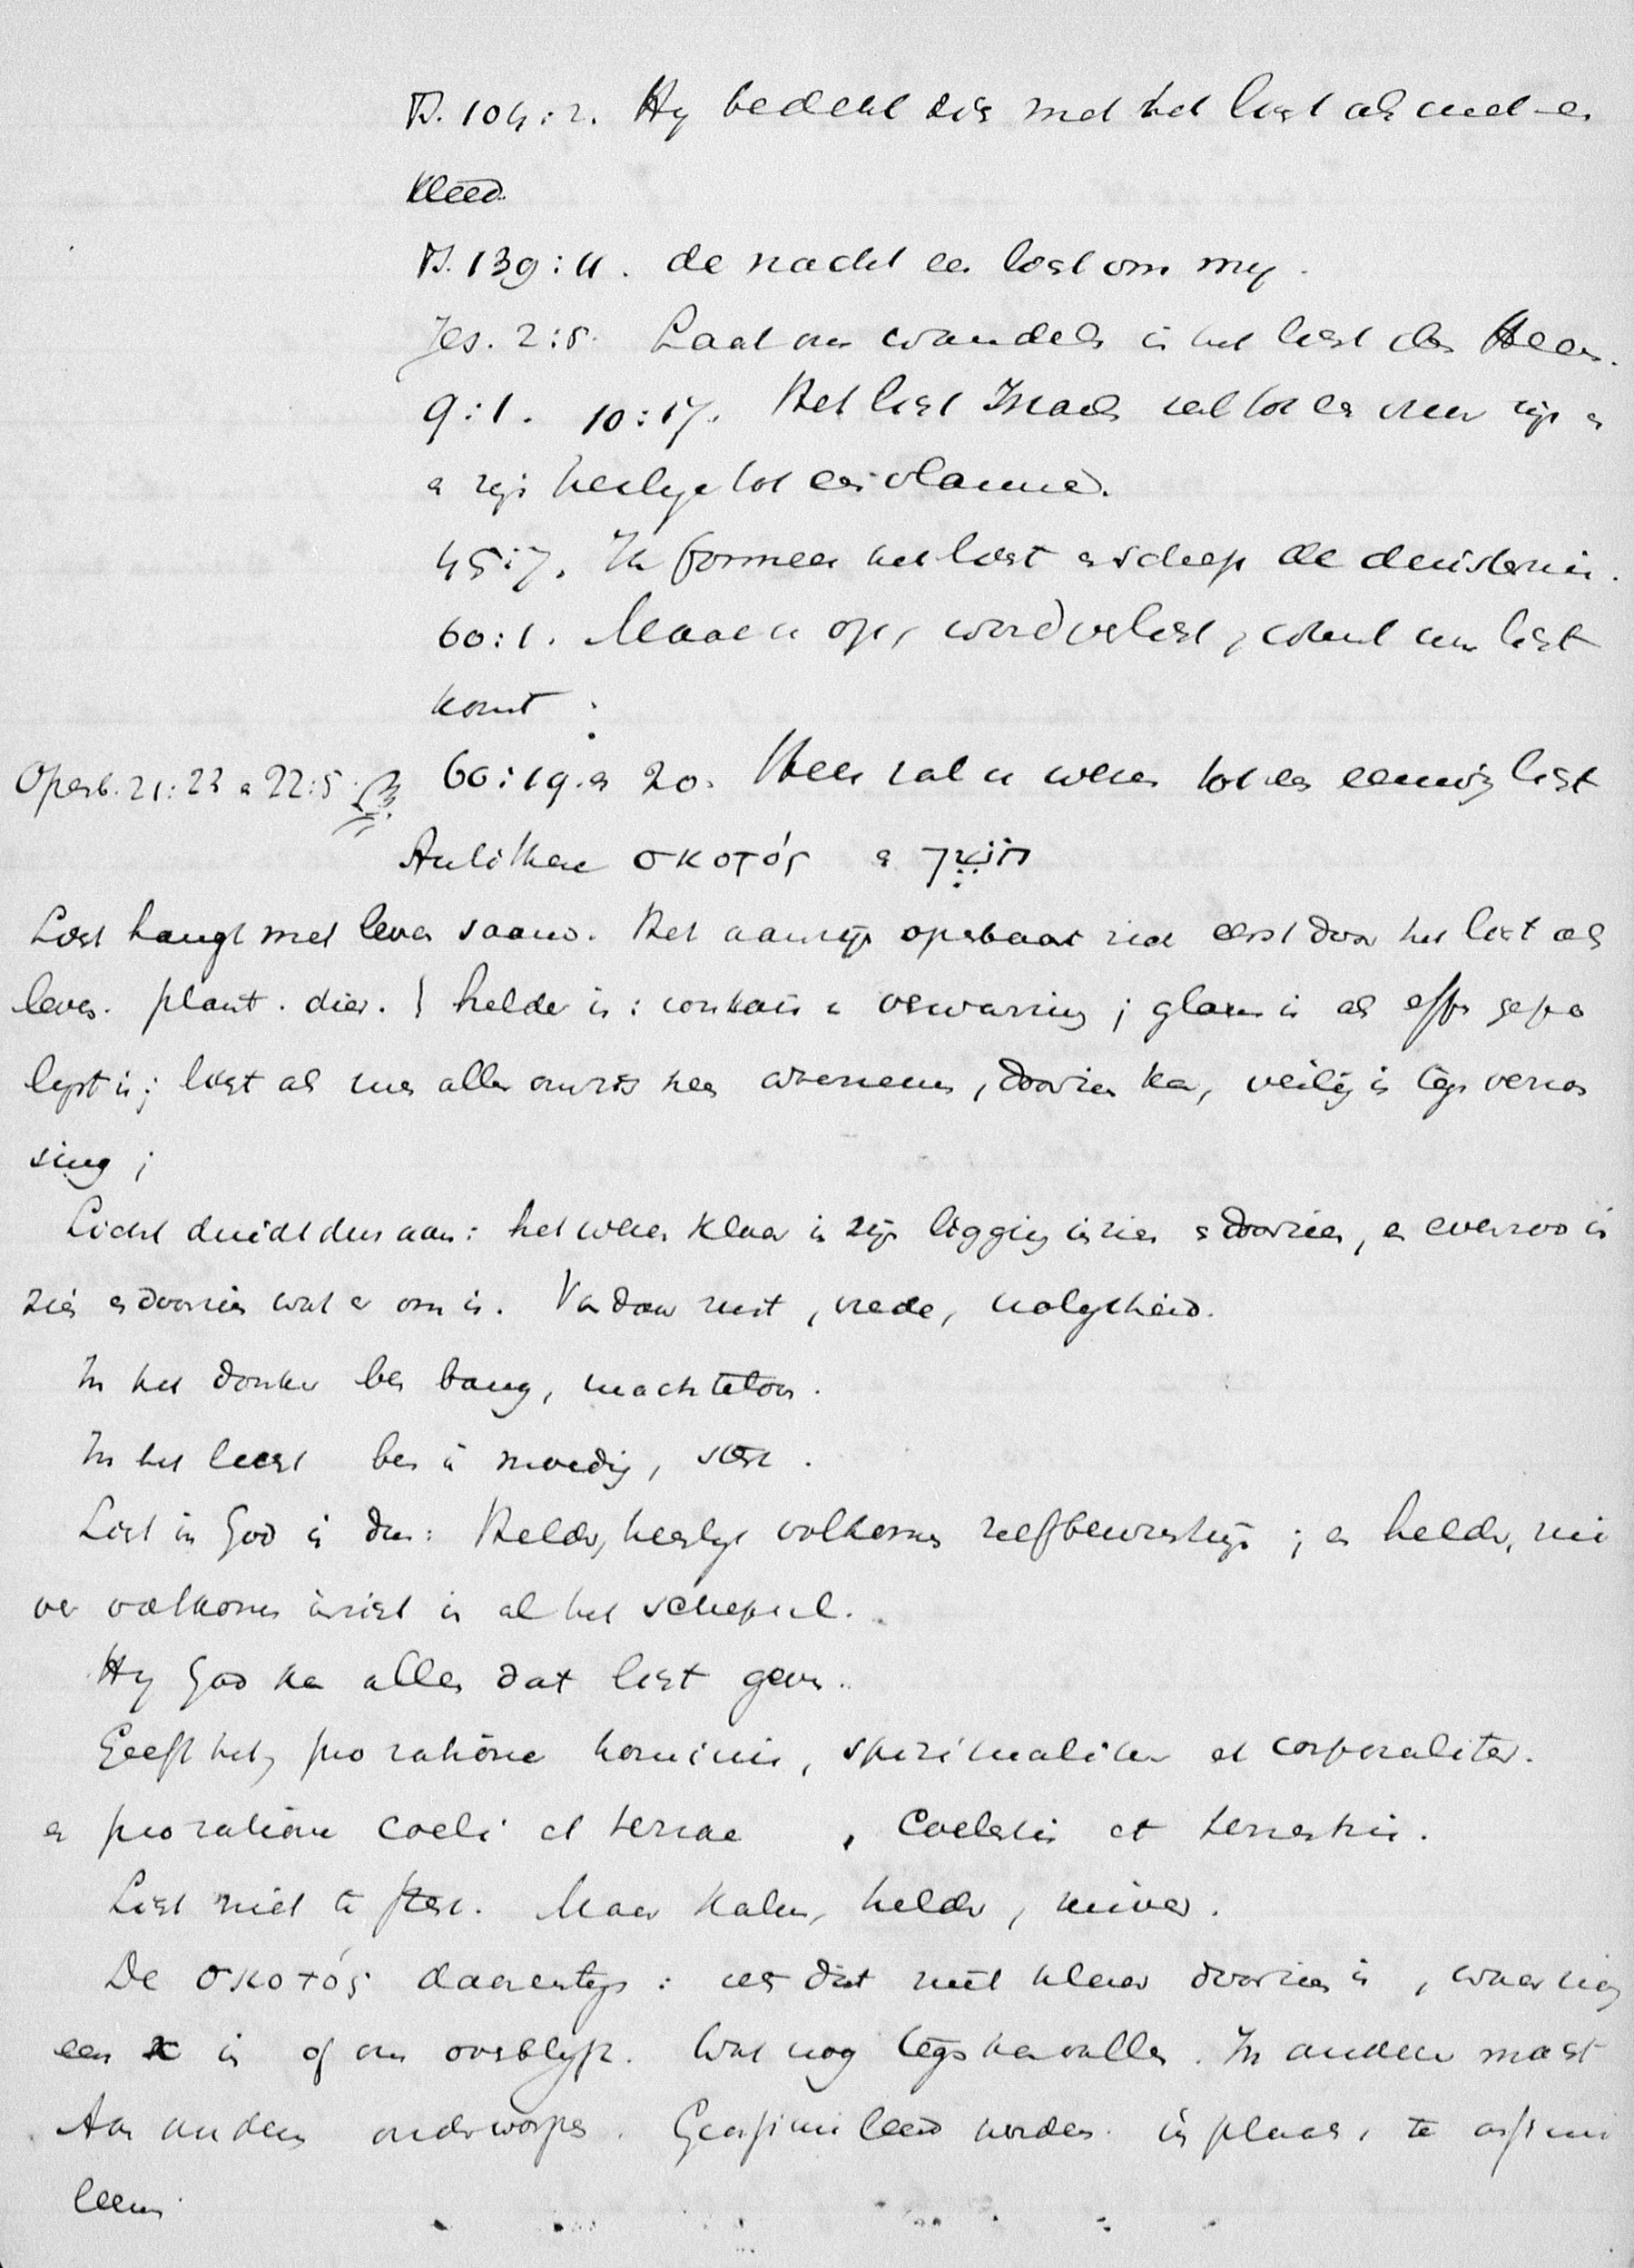 Ps. 104:2. Hy bedekt zich met het licht als met een
kleed.
Ps. 139:11. de nacht een licht om my.
Jes. 2:5. Laat ons wandelen in het licht des Heeren.
9:1. 10:17. Het licht Israels zal tot een vuur zijn en
en zijn heilige tot een vlamme.
45:7. Ik formeer het licht en schep de duisternis.
60:1. Maak u op, word verlicht, want uw licht
komt.
Openb. 21:23 en 22:5. 60:19. en 20. Heer zal u wezen tot een eeuwig licht
Antithese σκοτός en חשך
Licht hangt met leven saam. Het aanzijn openbaar zich eerst door het licht als
leven. plant. dier. helder is: contrarie verwarring; glans is als effen gepo
lyst is; licht als men alles om zich heen waarnemen, doorzien kan, veilig is tegen verras
sing;
Licht duidt dus aan: het wezen klaar in zijn ligging inzien en doorzien, en evenzoo in
zien en doorzien wat er om is. Vandaar rust, vrede, zaligheid.
In het donker ben bang, machteloos.
In het licht ben ik moedig, sterk.
Licht in God is dus: Helder, heerlijk volkomen zelfbewustzijn; en helder, zui
ver volkomen inzicht in al het schepsel.
Hy God kan alles dat licht geven.
Geeft het, pro ratione hominis, spiritualiter et corporaliter.
en pro ratione coeli et terrae, Coelestis et terrestris.
Licht niet te sterk. Maar kalm, helder, zuiver.
De σκοτός daarentegen: iets dat niet klaar doorzien is, waar nog
een x in of om overblyft. Wat nog tegen kan vallen. In anders macht
Aan anders onderworpen. Geassimileerd worden in plaats, te assimi
leeren